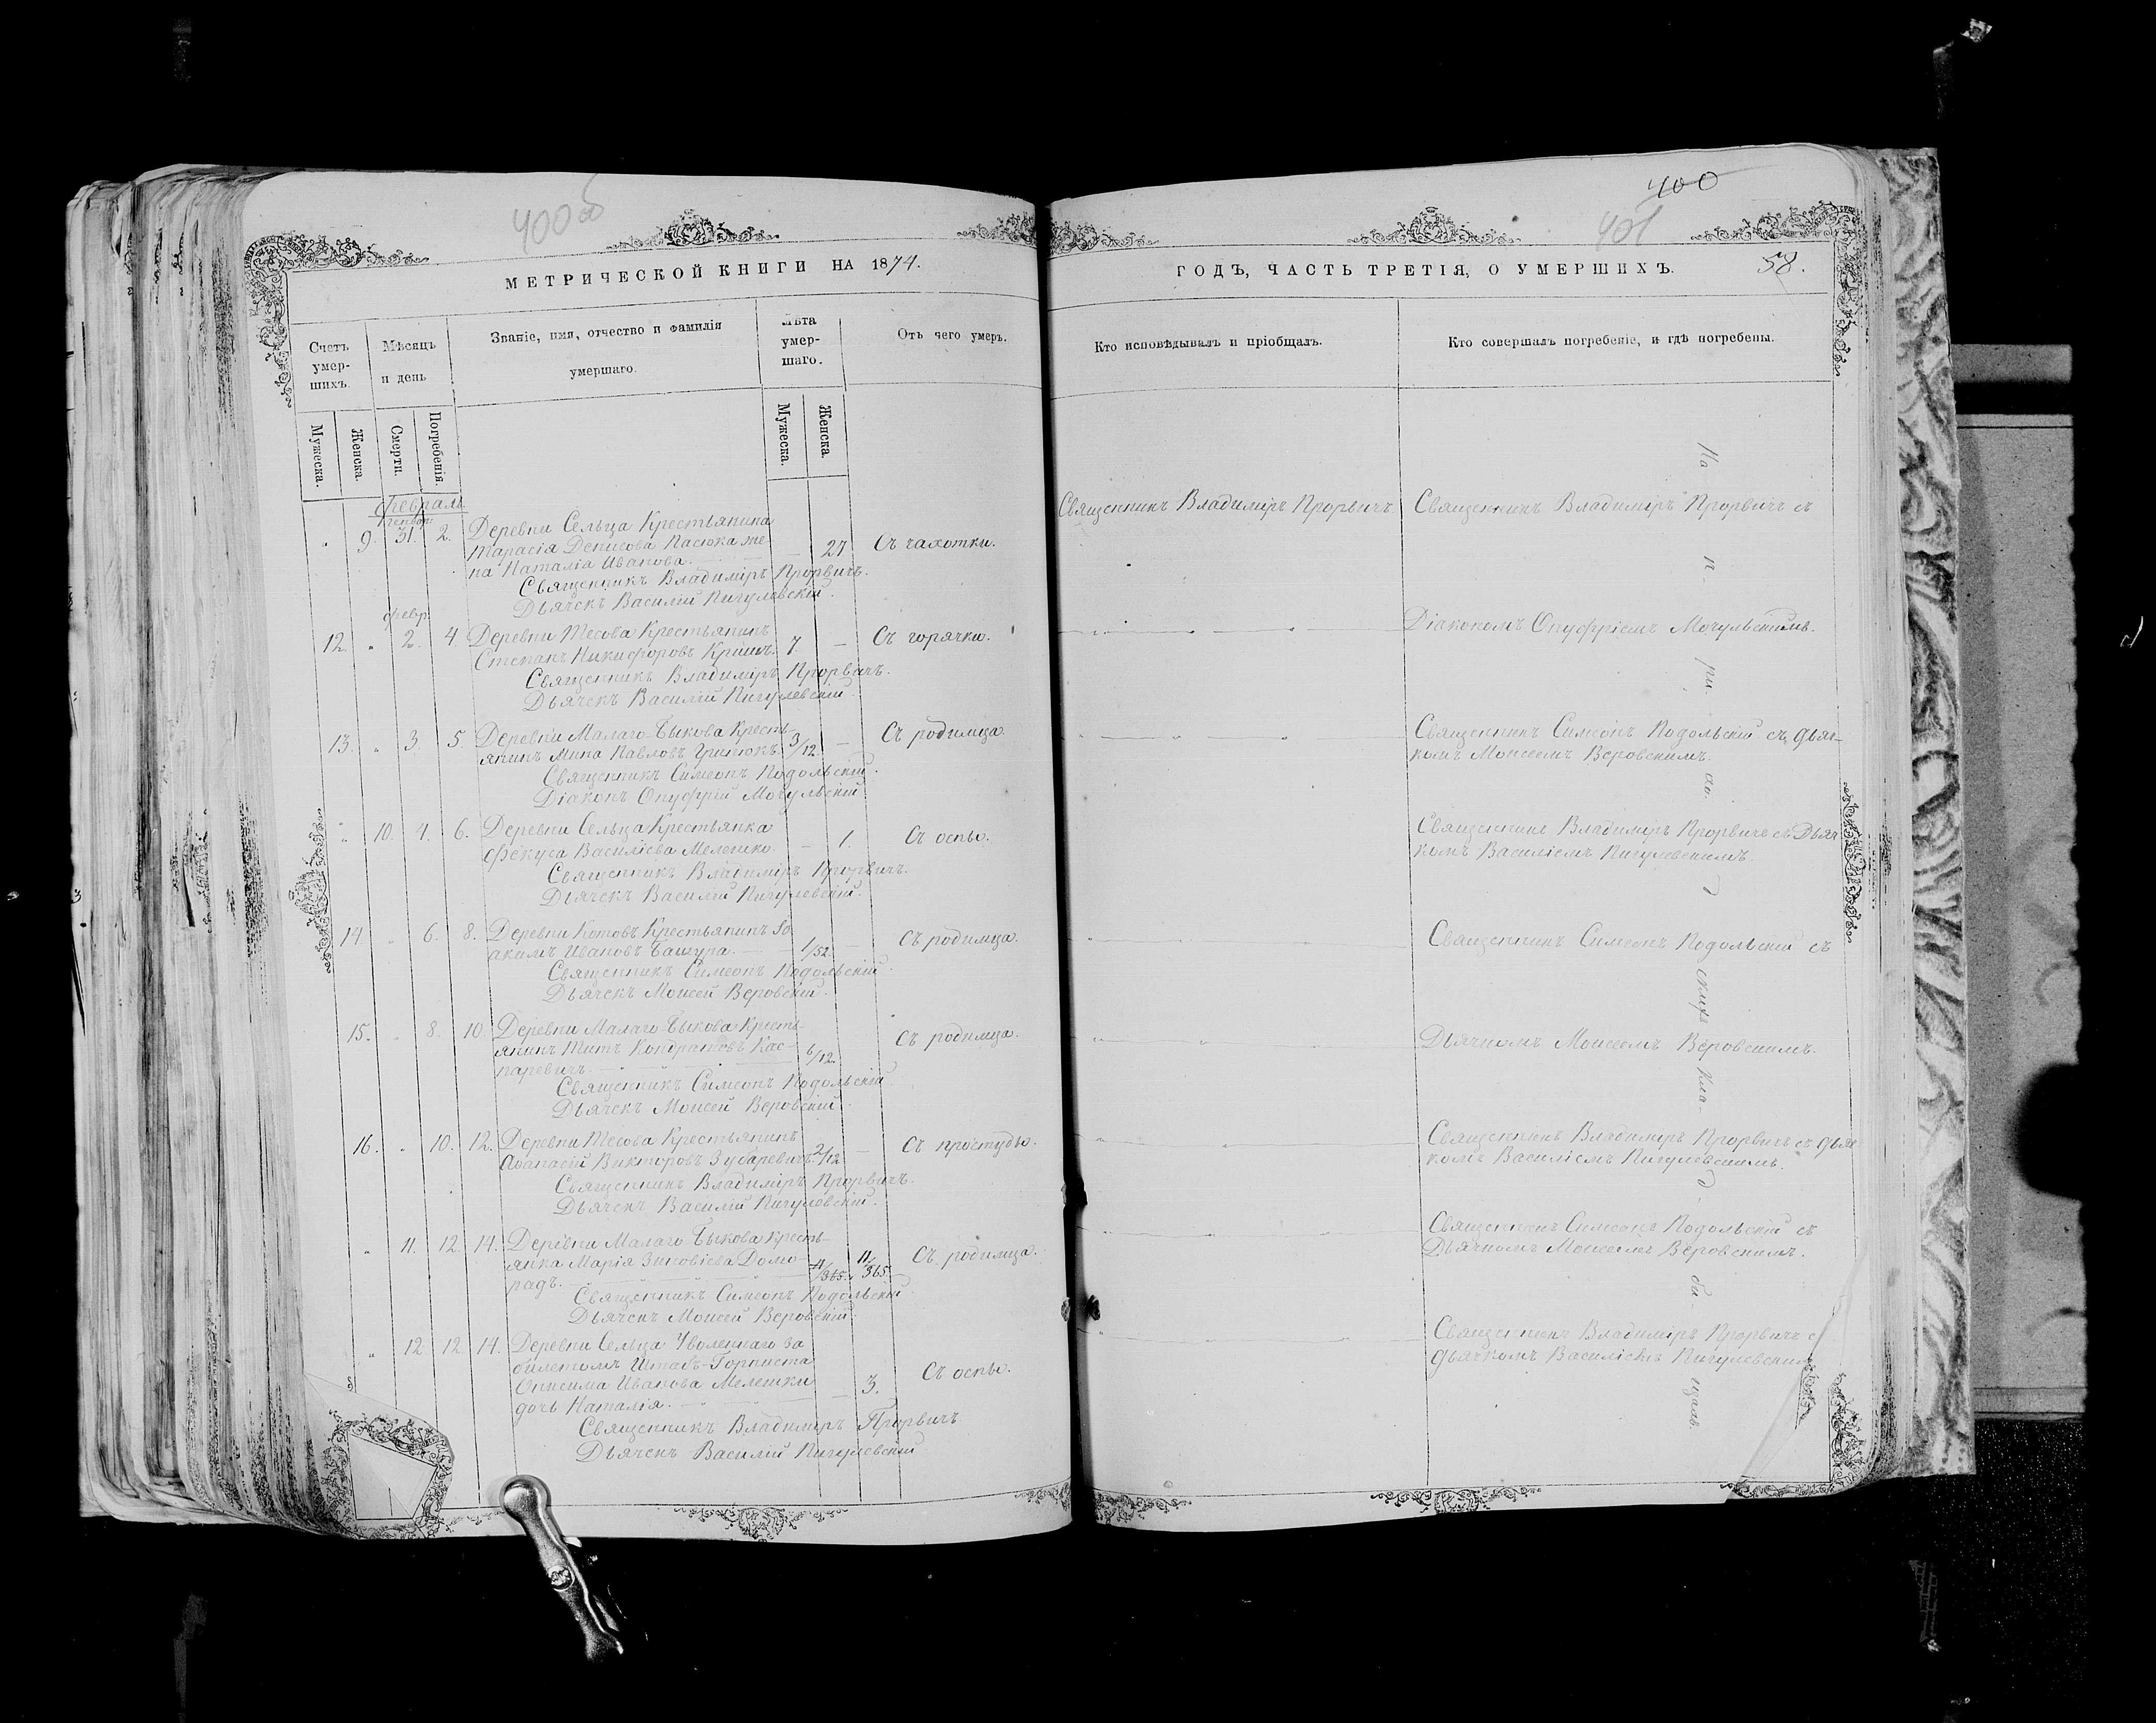 400 об
МЕТРИЧЕСКОЙ КНИГИ НА 1874.
Счетъ умер-шихъ.
Мѣсяцъ и день
Званіе, имя, отчество и фамилія умершаго.
Лѣта умер-шаго.
Отъ чего умеръ.
Мужеска.
Женска.
Смерти.
Погребенія.
Мужеска.
Женска.
Февраль
Генвар
" 9. 31. 2. Деревни Сельца Крестьянина
Тарасія Денисова Пасюка же- — 27 Съ чахотки.
на Наталія Иванова.
Священникъ Владиміръ Прорвичъ.
Дьячекъ Василій Пигулевскій.
Февр.
12. " 2. 4. Деревни Тесова Крестьянинъ
Степанъ Никифоровъ Кришъ. 7. — Съ горячки.
Священникъ Владиміръ Прорвичъ.
Дьячекъ Василій Пигулевскій.
13. " 3. 5. Деревни Малаго-Быкова Кресть-
янинъ Мина Павловъ Гринюкъ. 3/12 — Съ родимца.
Священникъ Симеонъ Подольскій.
Діаконъ Онуфрій Мочульскій
" 10. 4. 6. Деревни Сельца Крестьянка
Фекуса Василіева Мелешко. — 1. Съ оспы.
Священникъ Владиміръ Прорвичъ.
Дьячекъ Василій Пигулевскій.
14. " 6. 8. Деревни Котовъ Крестьянинъ Іо
акимъ Ивановъ Башура. — 1/52. — Съ родимца.
Священникъ Симеонъ Подольскій.
Дьячекъ Моисей Веровскій.
15. " 8. 10. Деревни Малаго-Быкова Кресть-
янинъ Титъ Кондратовъ Кас- 6/12. Съ родимца.
паревичъ.
Священникъ Симеонъ Подольскій
Дьячекъ Моисей Веровскій.
16. " 10. 12. Деревни Тесова Крестьянинъ
Аѳанасій Викторовъ Зубаревичъ. 2/12 — Съ простуды.
Священникъ Владиміръ Прорвичъ.
Дьячекъ Василій Пигулевскій.
" 11. 12. 14. Деревни Малаго Быкова Кресть-
янка Марія Зиновіева Домо 11/365. 11/365 Съ родимца.
радъ.
Священникъ Симеонъ Подольскій.
Дьячекъ Моисей Веровскій.
" 12 12. 14. Деревни Сельца Уволеннаго за
билетомъ Штабъ-Горниста
Онисима Иванова Мелешки — 3. Съ оспы.
дочь Наталія.
Священникъ Владиміръ Прорвичъ
Дьячекъ Василій Пигулевскій
400
401
ГОДЪ, ЧАСТЬ ТРЕТІЯ, О УМЕРШИХЪ. 58.
Кто исповѣдывалъ и пріобщалъ.
Кто совершалъ погребеніе, и гдѣ погребены.
Священникъ Владиміръ Прорвичъ
Священникъ Владиміръ Прорвичъ съ
Діакономъ Онуфріемъ Мочульскимъ.
Священникъ Симеонъ Подольскій съ дьяч-
комъ Моисеемъ Веровскимъ.
Священникъ Владиміръ Прорвичъ съ Дьяч
комъ Василіемъ Пигулевскимъ.
Священникъ Симеонъ Подольскій съ
Дьячкомъ Моисеемъ Веровскимъ.
Священникъ Владиміръ Прорвичъ съ дьяч
комъ Василіемъ Пигулевскимъ.
Священникъ Симеонъ Подольскій съ
Дьячкомъ Моисеемъ Веровскимъ.
Священникъ Владиміръ Прорвичъ с
дьячкомъ Василіемъ Пигулевским
На